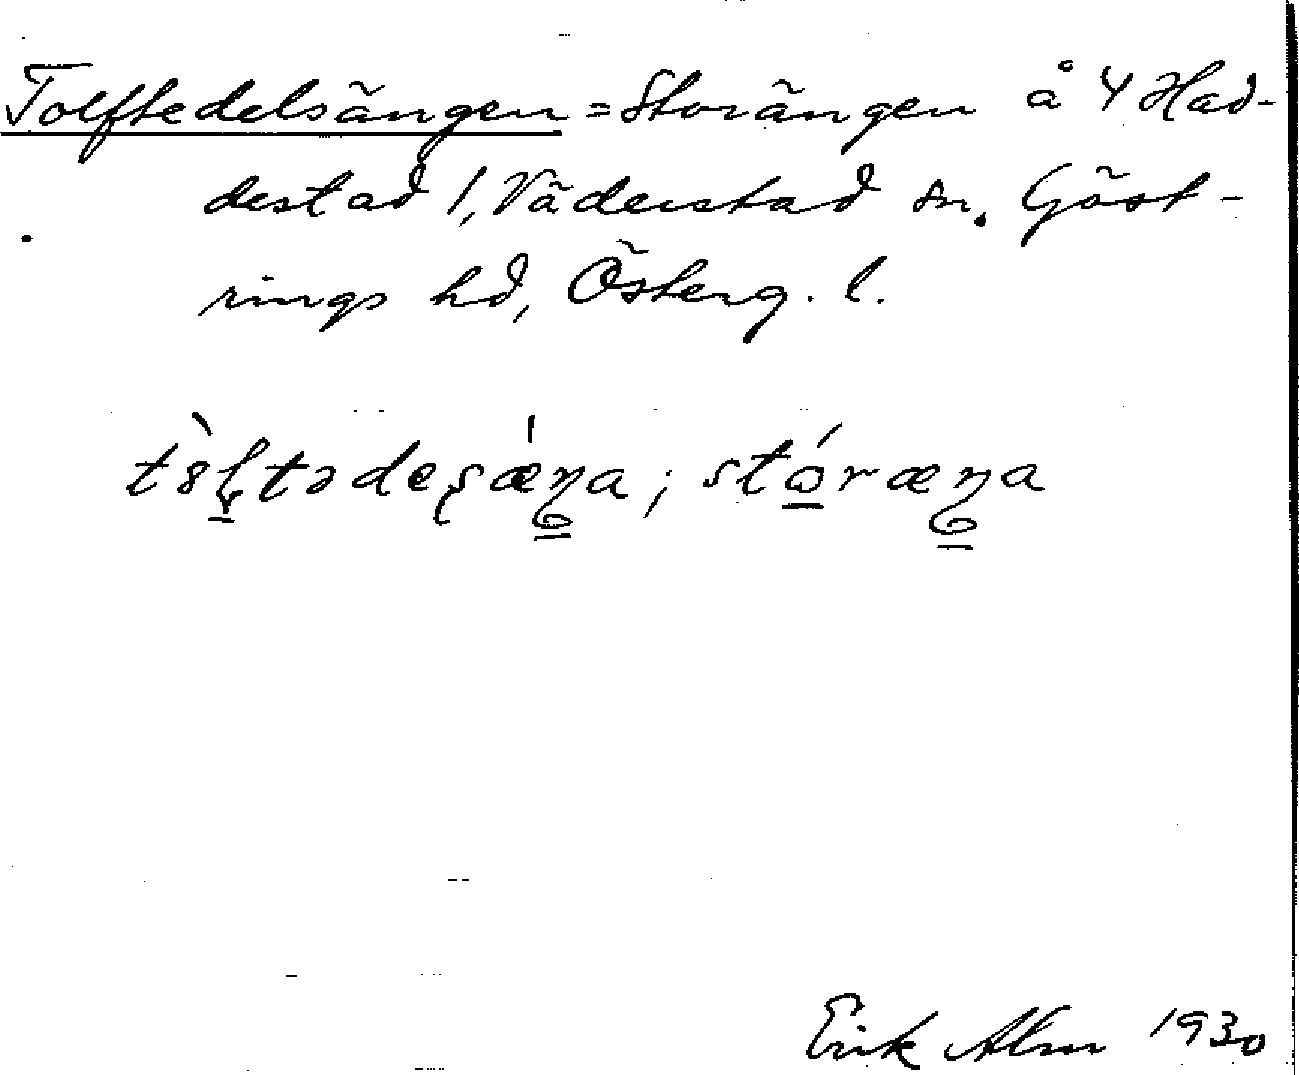 Tolftedelsängen = Storängen å 4 Had-
destad 1, Väderstad sn. Göst-
rings hd, Österg. l.
stóræŋa
Erik Alm 1930